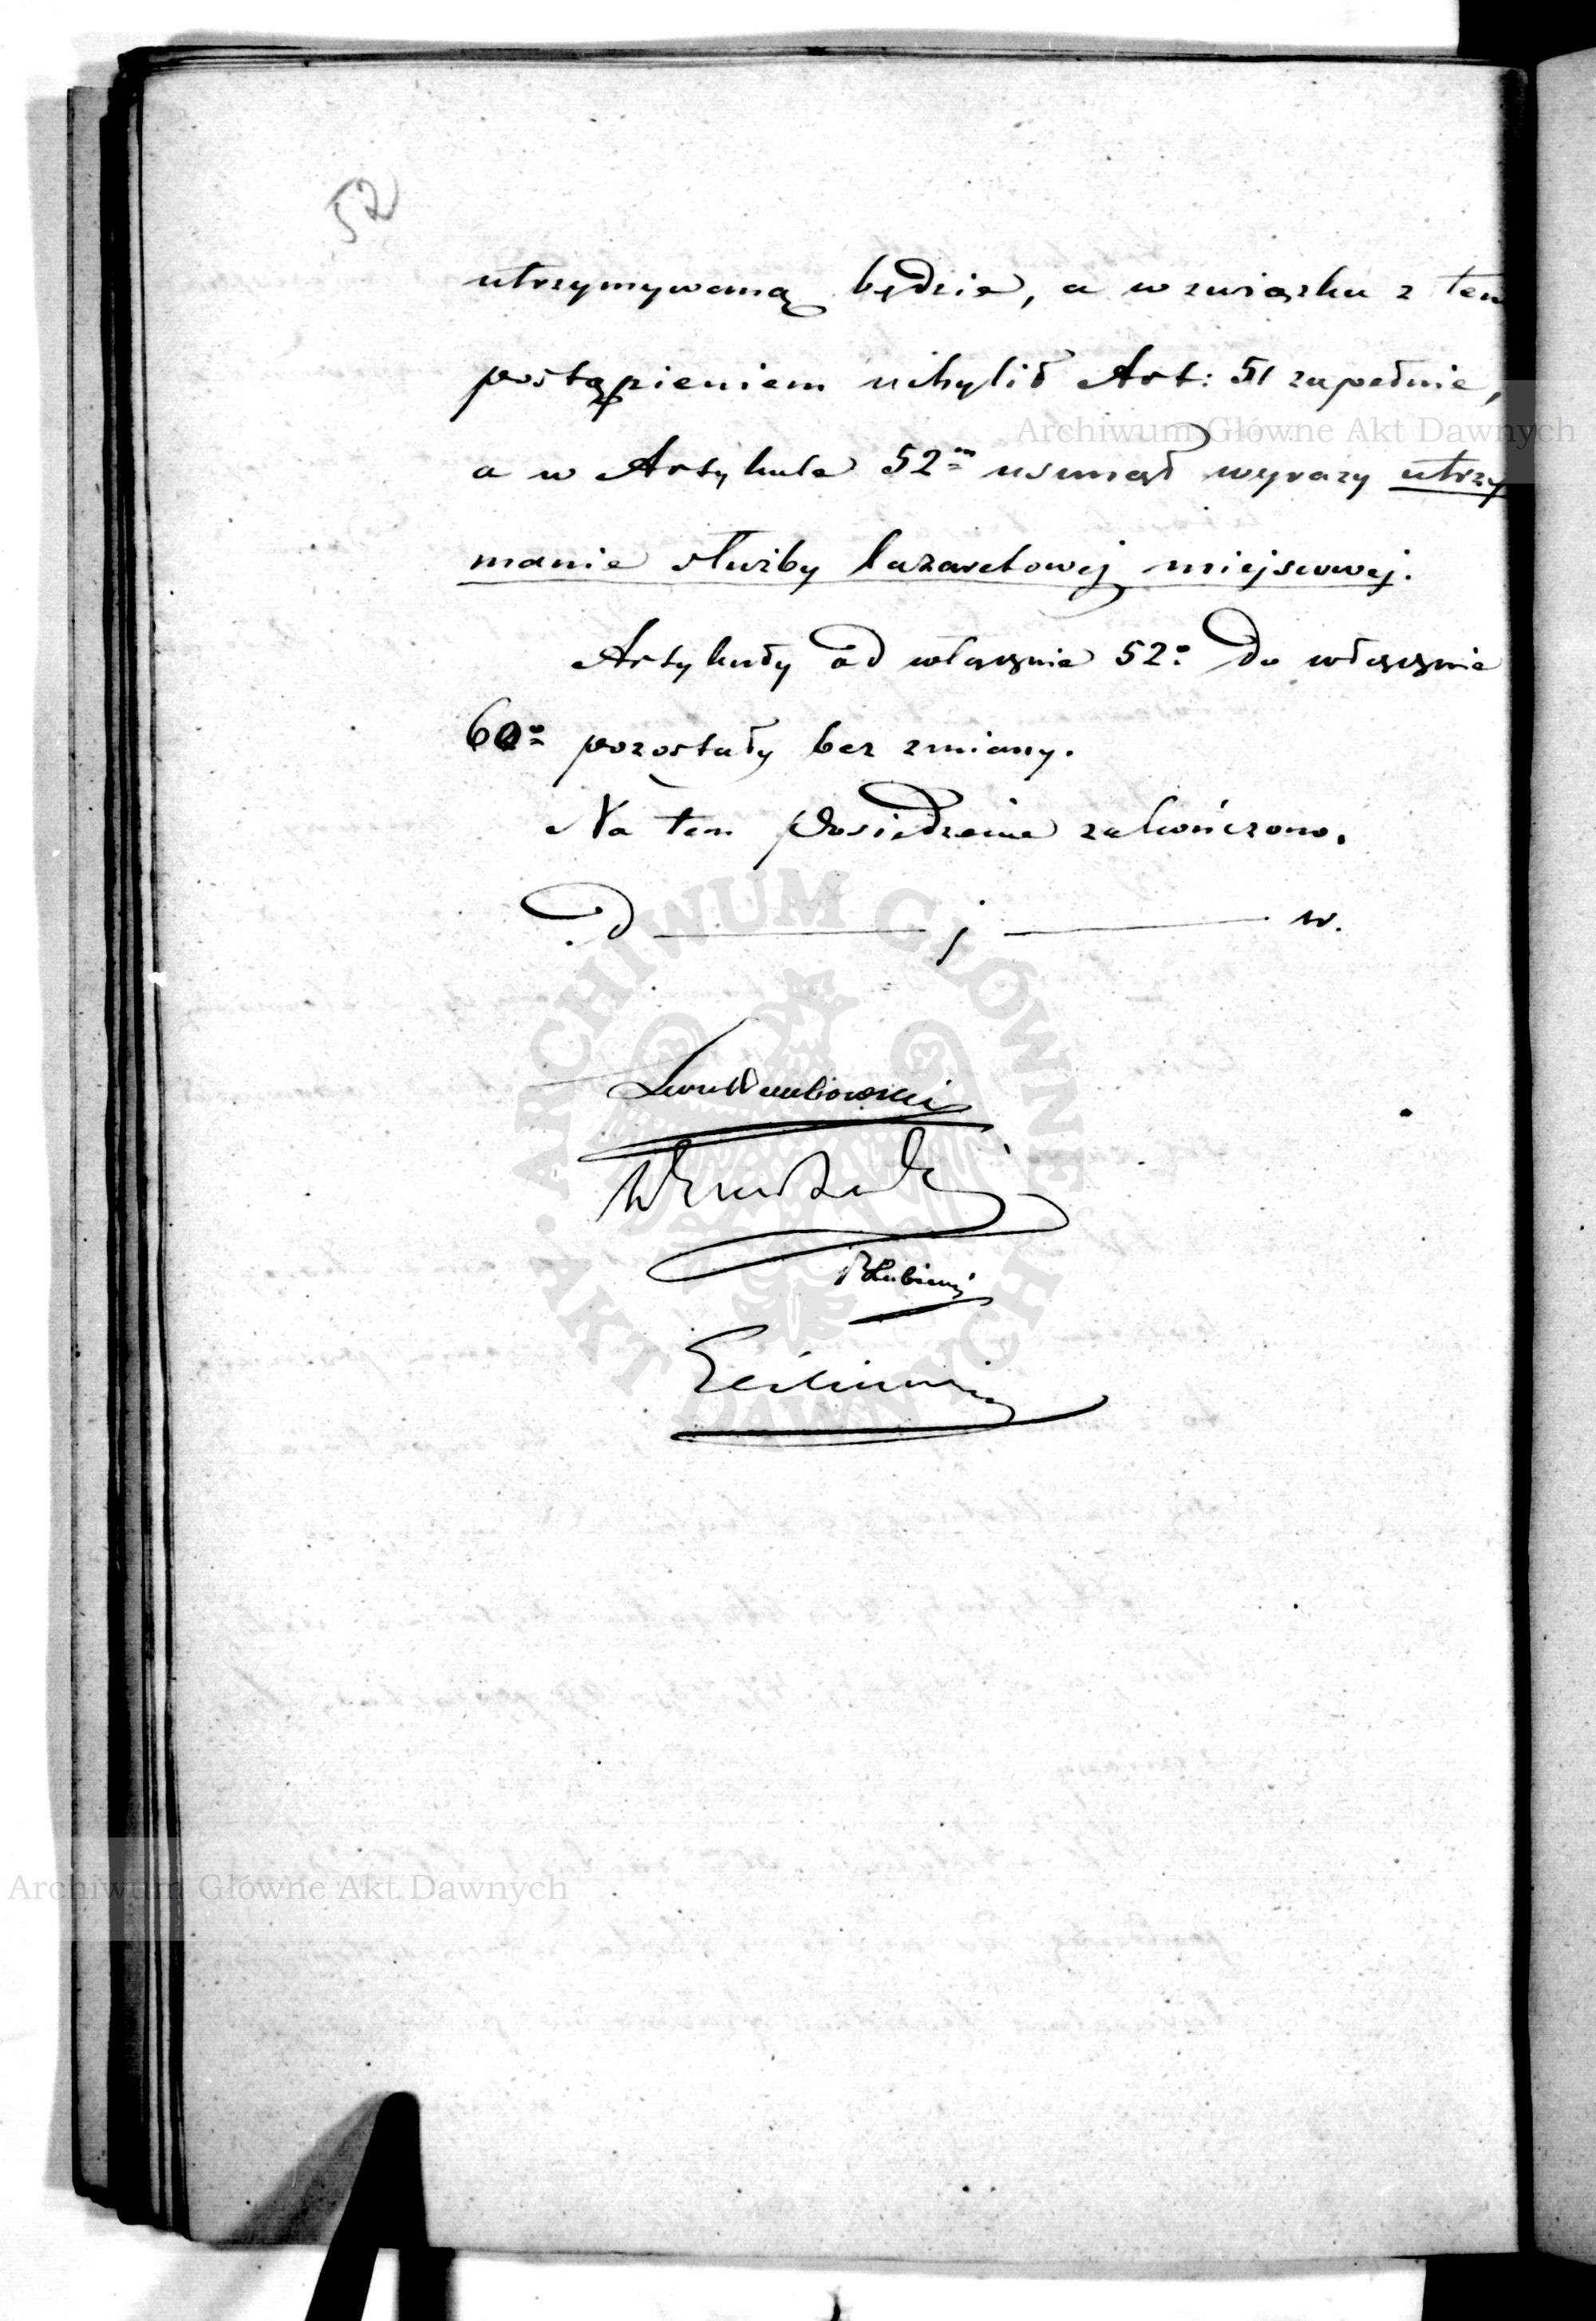 52
utrzymywaną będzie, a w związku z tem
postąpieniem uchylił Art: 51 zupełnie,
Archiwum Główne Akt Dawnych
a w Artykule 52m usunął wyrazy utrzy
manie służby lazaretowej miejscowej.
Artykuły od włącznie 52o do włącznie
60o pozostały bez zmiany.
Na tem Posiedzenie zakończono.
D j w.
ARCHIWUM GŁÓWNE AKT DAWNYCH
Łubieński
Archiwum Główne Akt Dawnych